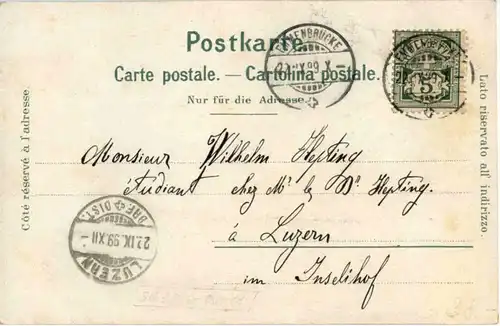 Postkarte.
Carte postale. — Cartolina postale.
Nur für die Adresse.
Côté réservé à l'adresse.
Lato riservato all' indirizzo.
5
22.IX.99.X-
Monsieur Wilhelm Hepting
étudiant chez Mr le Dr Hepting.
à Luzern
im Inselihof
LUZERN
22.IX.99.XII-
BRF. DIST.